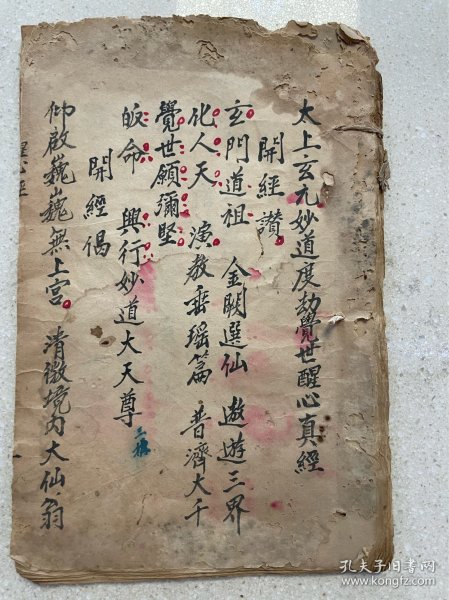 太上玄元妙道度劫覺世醒心真經
開經讚
玄門道祖 金闕選仙 遨遊三界
化人天 演教垂瑶篇 普濟大千
覺世願彌堅
皈命 興行妙道大天尊 三稱
開經偈
仰啟巍巍無上宮 清微境内大仙翁
孔夫子旧书网
www.kongfz.com